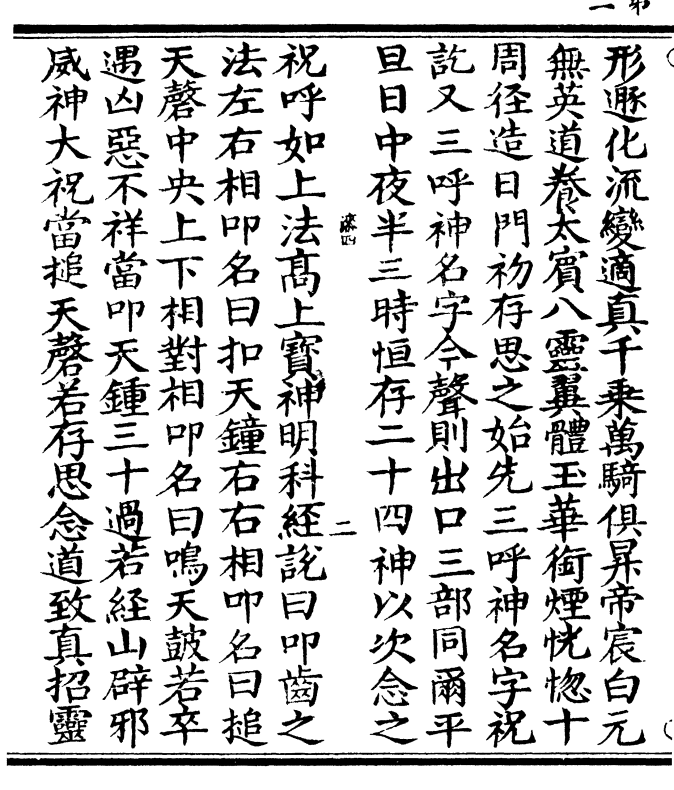 形遯化流變適真千乗萬騎俱昇帝宸白元
無英道養太賓八靈翼體玉華衛煙恍惚十
周径造日門初存思之始先三呼神名字祝
訖又三呼神名字令聲則出口三部同爾平
旦日中夜半三時恒存二十四神以次念之
二
祝呼如上法髙上寶神明科経說曰叩齒之
法左右相叩名曰扣天鐘右右相叩名曰搥
天磬中央上下相對相叩名曰鳴天皷若卒
遇凶惡不祥當叩天鍾三十過若経山辟邪
威神大祝當搥天磬若存思念道致真招靈